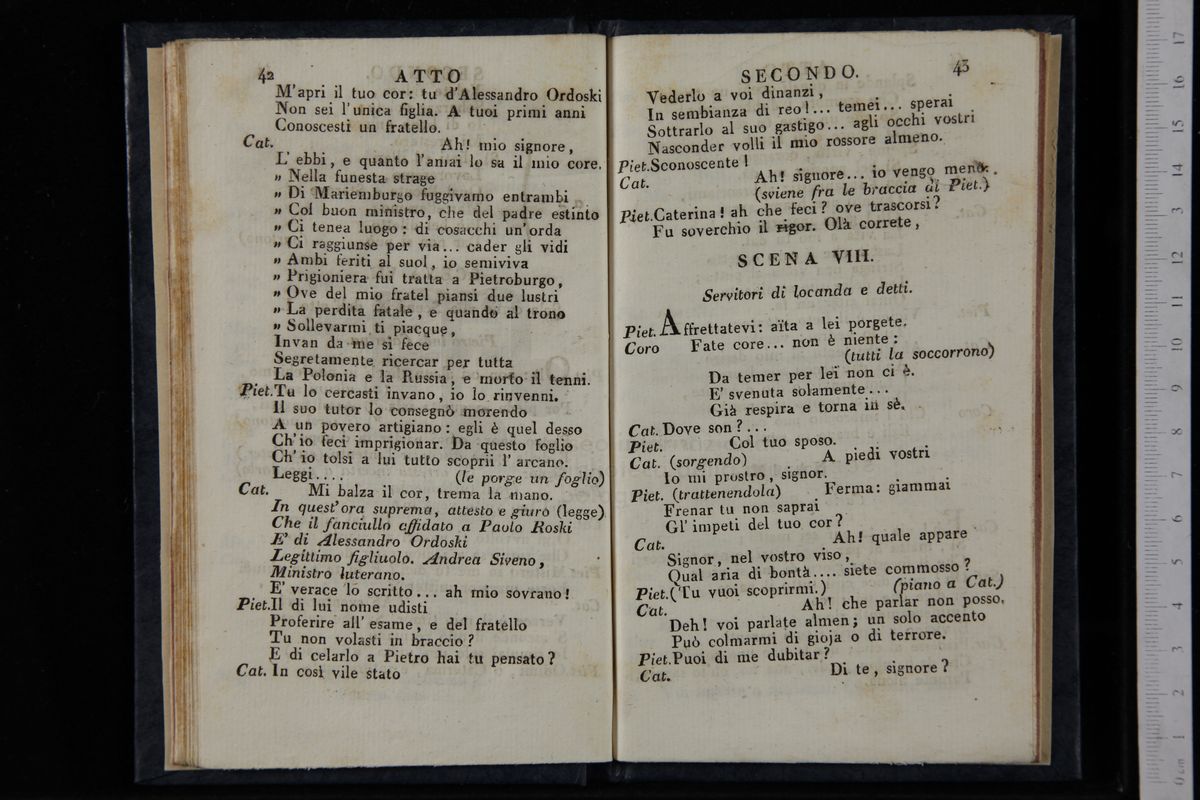 42 ATTO
M'apri il tuo cor: tu d'Alessandro Ordoski
Non sei l'unica figlia. A tuoi primi anni
Conoscesti un fratello.
Cat. Ah! mio signore,
L'ebbi, e quanto l'amai lo sa il mio core.
" Nella funesta strage
" Di Mariemburgo fuggivamo entrambi
" Col buon ministro, che del padre estinto
" Ci tenea luogo: di cosacchi un'orda
" Ci raggiunse per via... cader gli vidi
" Ambi feriti al suol, io semiviva
" Prigioniera fui tratta a Pietroburgo,
" Ove del mio fratel piansi due lustri
" La perdita fatale, e quando al trono
" Sollevarmi ti piacque,
Invan da me si fece
Segretamente ricercar per tutta
La Polonia e la Russia, e morto il tenni.
Piet. Tu lo cercasti invano, io lo rinvenni.
Il suo tutor lo consegnò morendo
A un povero artigiano: egli è quel desso
Ch'io feci imprigionar. Da questo foglio
Ch'io tolsi a lui tutto scoprii l'arcano.
Leggi.... (le porge un foglio)
Cat. Mi balza il cor, trema la mano.
In quest'ora suprema, attesto e giuro (legge)
Che il fanciullo affidato a Paolo Roski
E' di Alessandro Ordoski
Legittimo figliuolo. Andrea Siveno,
Ministro luterano.
E' verace lo scritto... ah mio sovrano!
Piet. Il di lui nome udisti
Proferire all'esame, e del fratello
Tu non volasti in braccio?
E di celarlo a Pietro hai tu pensato?
Cat. In così vile stato
SECONDO. 43
Vederlo a voi dinanzi,
In sembianza di reo!... temei... sperai
Sottrarlo al suo gastigo... agli occhi vostri
Nasconder volli il mio rossore almeno.
Piet. Sconoscente!
Cat. Ah! signore... io vengo meno.
(sviene fra le braccia di Piet.)
Piet. Caterina! ah che feci? ove trascorsi?
Fu soverchio il rigor. Olà correte,
SCENA VIII.
Servitori di locanda e detti.
Piet. Affrettatevi: aïta a lei porgete.
Coro Fate core... non è niente:
(tutti la soccorrono)
Da temer per lei non ci è.
E' svenuta solamente...
Già respira e torna in sè.
Cat. Dove son?...
Piet. Col tuo sposo.
Cat. (sorgendo) A piedi vostri
Io mi prostro, signor.
Piet. (trattenendola) Ferma: giammai
Frenar tu non saprai
Gl'impeti del tuo cor?
Cat. Ah! quale appare
Signor, nel vostro viso,
Qual aria di bontà.... siete commosso?
Piet. (Tu vuoi scoprirmi.) (piano a Cat.)
Cat. Ah! che parlar non posso.
Deh! voi parlate almen; un solo accento
Può colmarmi di gioja o di terrore.
Piet. Puoi di me dubitar?
Cat. Di te, signore?